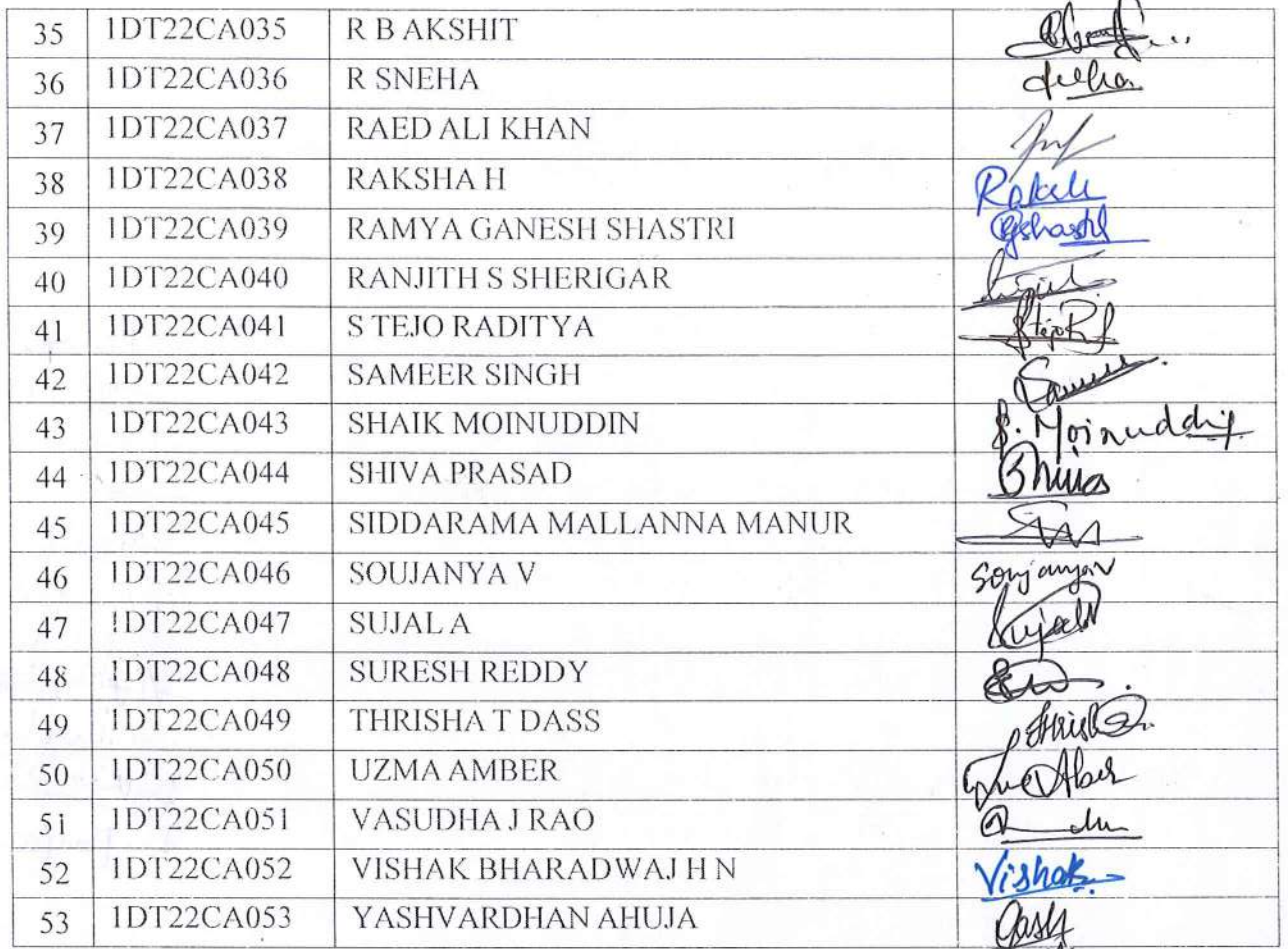 35 1DT22CA035 R B AKSHIT
36 1DT22CA036 R SNEHA
37 1DT22CA037 RAED ALI KHAN
38 1DT22CA038 RAKSHA H
39 1DT22CA039 RAMYA GANESH SHASTRI
40 1DT22CA040 RANJITH S SHERIGAR
41 1DT22CA041 S TEJO RADITYA
42 1DT22CA042 SAMEER SINGH
43 1DT22CA043 SHAIK MOINUDDIN S. Moinuddin
44 1DT22CA044 SHIVA PRASAD
45 1DT22CA045 SIDDARAMA MALLANNA MANUR
46 1DT22CA046 SOUJANYA V Soujanya V
47 1DT22CA047 SUJAL A
48 1DT22CA048 SURESH REDDY
49 1DT22CA049 THRISHA T DASS
50 1DT22CA050 UZMA AMBER
51 1DT22CA051 VASUDHA J RAO
52 1DT22CA052 VISHAK BHARADWAJ H N Vishak
53 1DT22CA053 YASHVARDHAN AHUJA